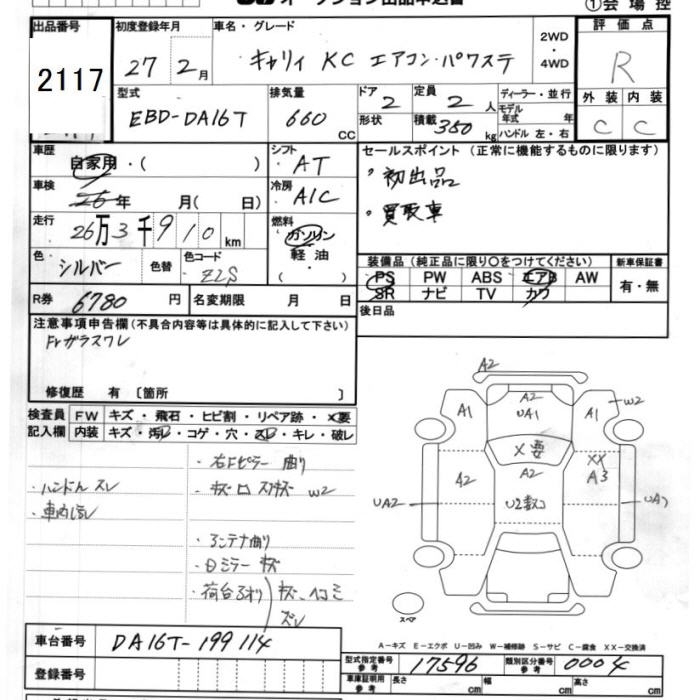 オークション出品申込書 ①会場控
出品番号 初度登録年月 車名・グレード 2WD・4WD 評価点
2117 27年 2月 キャリィ KC エアコン・パワステ R
型式 排気量 ドア 定員 ディーラー・並行 外装 内装
EBD-DA16T 660 CC 2 2人 モデル年式 年 C C
形状 積載 350 kg ハンドル 左・右
車歴 自家用・( ) シフト AT セールスポイント (正常に機能するものに限ります)
車検 26年 月( 日) 冷房 A/C ・初出品
走行 26万3千910km 燃料 ガソリン ・買取車
軽油・( )
色 シルバー 色替 色コード Z2S
装備品(純正品に限り○をつけてください) 新車保証書
PS PW ABS エアB AW 有・無
SR ナビ TV カワ
R券 6780円 名変期限 月 日 後日品
注意事項申告欄(不具合内容等は具体的に記入して下さい)
Frガラスワレ
修復歴 有 〔箇所 〕
検査員 FW キズ・飛石・ヒビ割・リペア跡・X要
記入欄 内装 キズ・汚レ・コゲ・穴・スレ・キレ・破レ
・右Fピラー曲り
・ハンドルスレ
・車内汚レ
・アンテナ曲り
・ミラーキズ
・荷台アオリ キズ、ヘコミ
ズレ
A2
A1 A2 UA1 A1 W2
X要 XX
A2 A2 A3
UA2 U2数コ UA1
スペア
A-キズ E-エクボ U-凹み W-補修跡 S-サビ C-腐食 XX-交換済
車台番号 DA16T-199114
型式指定番号 参考 17596 類別区分番号 参考 0004
登録番号 車庫証明用 参考 長さ cm 幅 cm 高さ cm